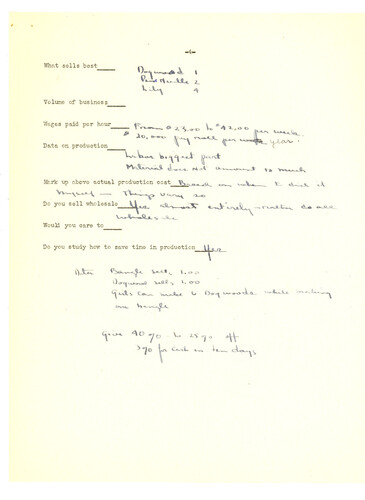 -4-
What sells best____ Dogwood 1
Pine Needle 2
Lily 4
Volume of business____
Wages paid per hour____ From $25.00 to $42.00 per week.
$20,000 pay roll per year
Data on production____
Labor biggest part
Material does not amount to much
Mark up above actual production cost Based on when to duct it
myself — Things vary so
Do you sell wholesale Yes almost entirely rather do all
wholesale
Would you care to____
Do you study how to save time in production Yes
Data Bangle sells 1.00
Dogwood sells 1.00
Girls can make 6 Dogwoods while making
one bangle
Give 40 % to 25 % off
3% for cash in ten days